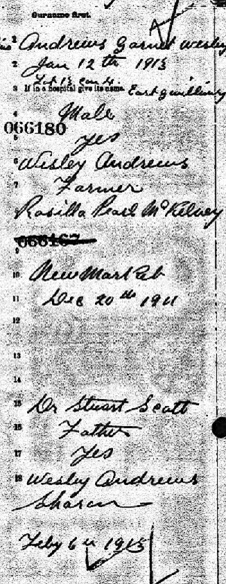 Surname first.
1 Andrews Garnet Wesley
2 Jan 12th 1913
Lot 13 con 4.
3 If in a hospital give its name. East Gwillimbury
4 Male
066180
5 Yes
6 Wesley Andrews
7 Farmer
8 Rosilla Pearl McKelvey
9
10 New Market
11 Dec 20th 1911
12
13
14
15 Dr Stuart Scott
16 Father
17 Yes
18 Wesley Andrews
Sharon
Feby 6th 1913